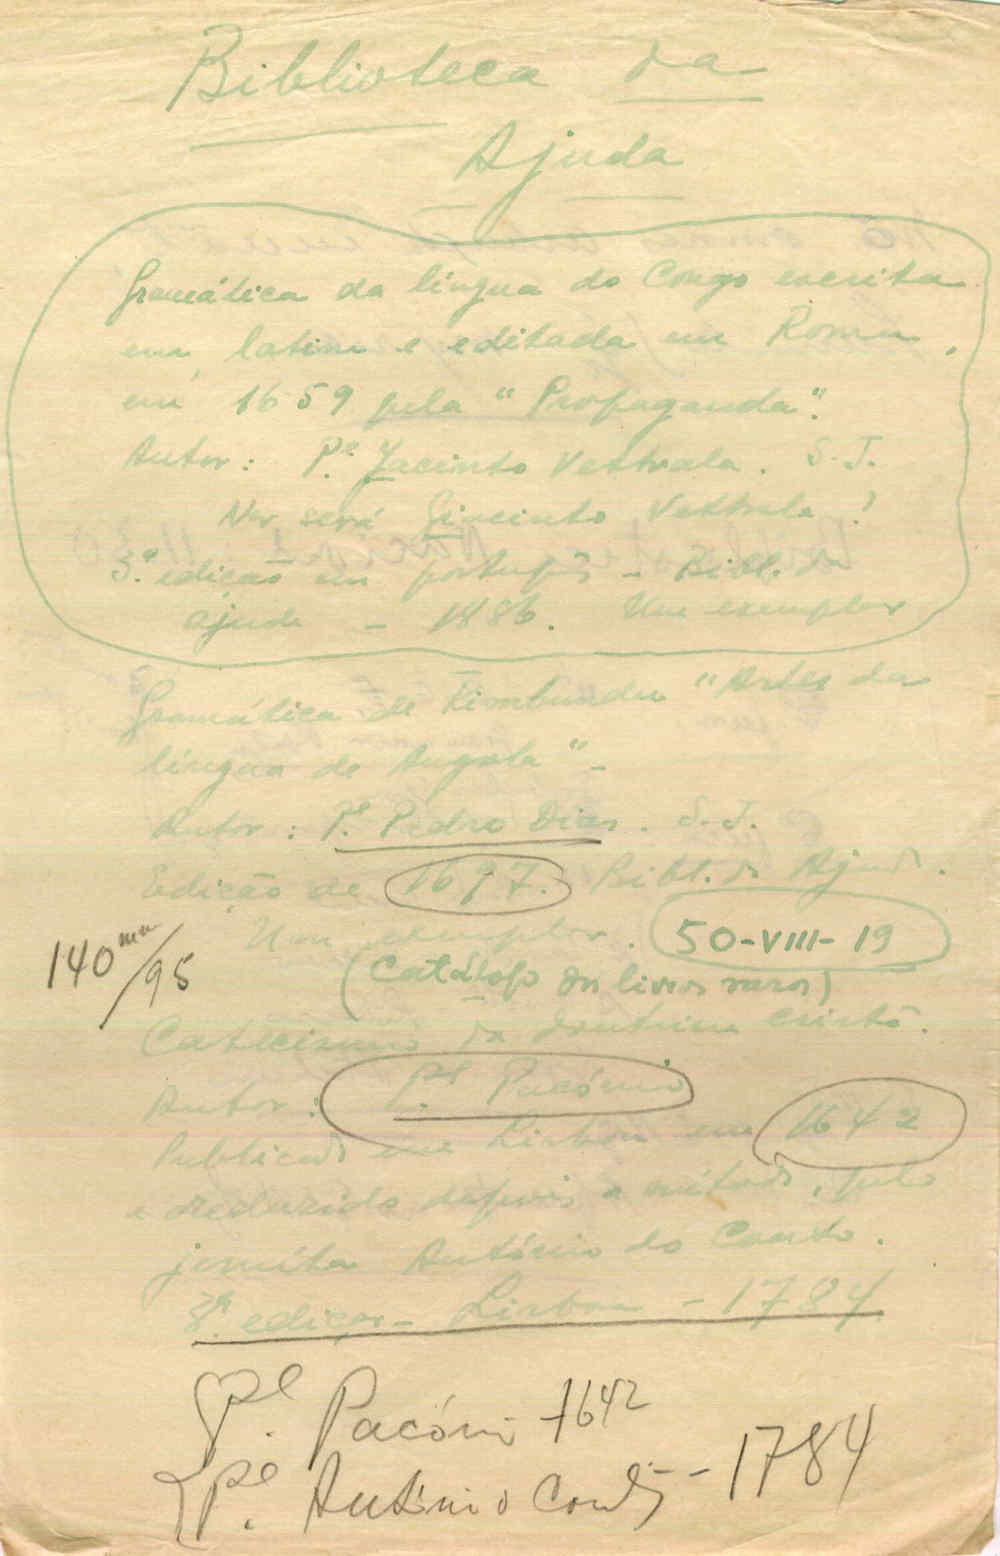 Biblioteca da
Ajuda
Gramática da língua do Congo escrita
em latim e editada em Roma,
em 1659 pela "Propaganda".
Autor: P.e Jacinto Vettrala. S.J.
Não será Giacinto Vettrala?
3.ª edição em português - Bibl. da
Ajuda - 1886. Um exemplar
Gramática de Kimbundu "Artes da
língua de Angola" -
Autor: P.e Pedro Dias. S.J.
Edição de 1697. Bibl. da Ajuda.
Um exemplar. 50-VIII-19
140 mm/95
(Catálogo dos livros raros)
Catecismo da doutrina cristã.
Autor: P.e Pacónio
Publicado em Lisboa em 1642
e reduzido depois a método, pelo
jesuíta António do Couto.
3.ª edição - Lisboa - 1784
P.e Pacóni 1642
P.e António o Couto - 1784